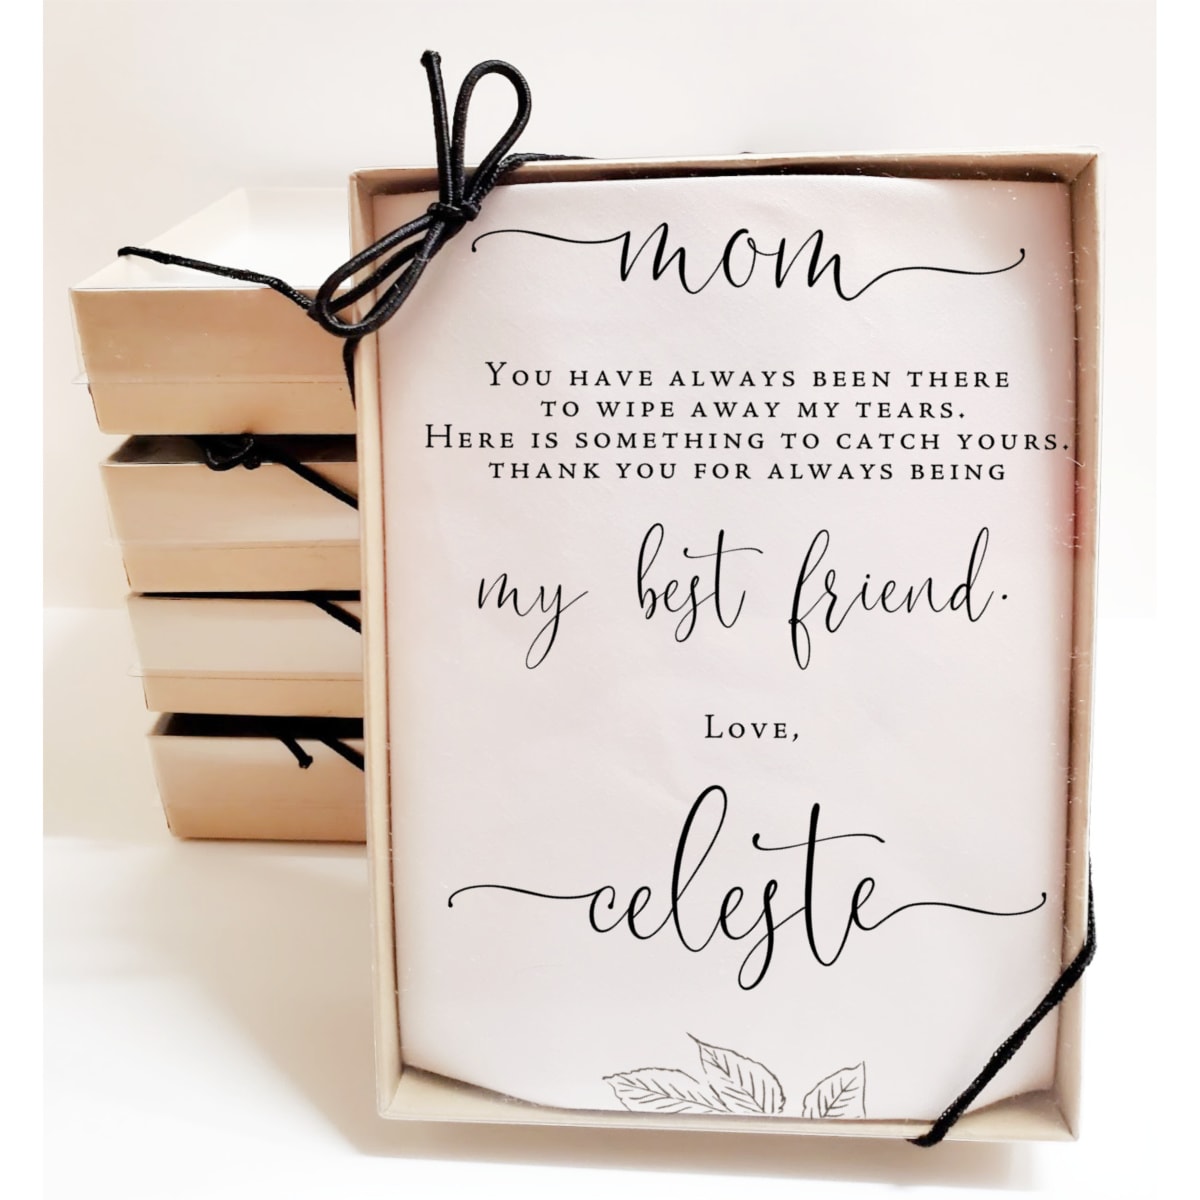 mom
You have always been there
to wipe away my tears.
Here is something to catch yours.
thank you for always being
my best friend.
Love,
celeste